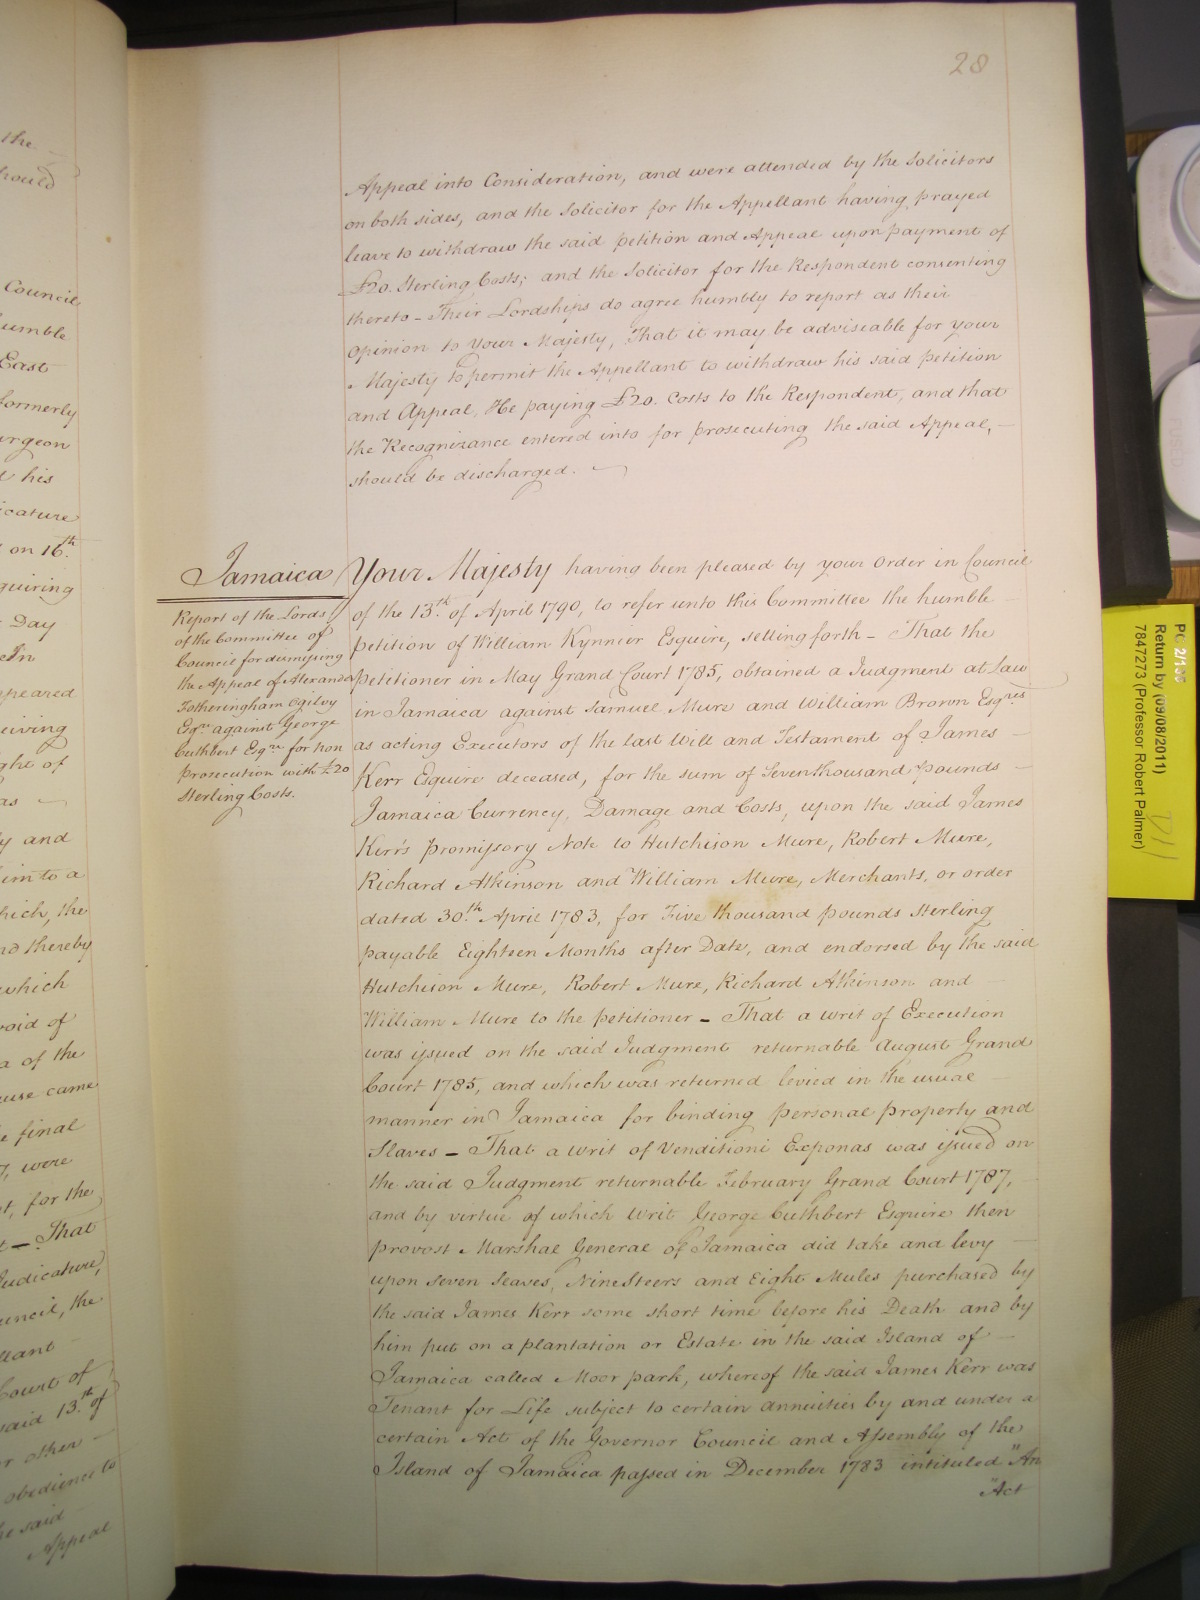 the
hould
Council
umble
East
formerly
urgeon
d his
icature
on 16th
quiring
Day
In
ppeared
eiving
ght of
as
ly and
im to a
hich, the
nd thereby
which
void of
a of the
use came
e final
7, were
t, for the
t – That
Judicature,
uncil, the
llant
Court of
said 13th of
or other
obedience to
he said
Appeal
28
Appeal into Consideration, and were attended by the Solicitors
on both sides, and the Solicitor for the Appellant having prayed
leave to withdraw the said petition and Appeal upon payment of
£20. Sterling Costs; and the Solicitor for the Respondent consenting
thereto – Their Lordships do agree humbly to report as their
Opinion to Your Majesty, That it may be adviseable for your
Majesty to permit the Appellant to withdraw his said petition
and Appeal, He paying £20. Costs to the Respondent, and that
the Recognizance entered into for prosecuting the said Appeal, –
should be discharged.
Jamaica
Report of the Lords
of the Committee of
Council for dismissing
the Appeal of Alexander
Fotheringham Ogilvy
Esqre against George
Cuthbert Esqre for non
prosecution with £20
Sterling Costs.
Your Majesty having been pleased by your Order in Council
of the 13th of April 1790, to refer unto this Committee the humble
petition of William Kynnier Esquire, setting forth – That the
petitioner in May Grand Court 1785, obtained a Judgment at Law
in Jamaica against Samuel Mure and William Brown Esqres
as acting Executors of the last Will and Testament of James –
Kerr Esquire deceased, for the sum of Seven thousand pounds –
Jamaica Currency, Damage and Costs, upon the said James
Kerr's Promissory Note to Hutchison Mure, Robert Mure,
Richard Atkinson and William Mure, Merchants, or order
dated 30th April 1783, for Five thousand pounds Sterling
payable Eighteen Months after Date, and endorsed by the said
Hutchison Mure, Robert Mure, Richard Atkinson and –
William Mure to the petitioner – That a writ of Execution
was issued on the said Judgment returnable August Grand
Court 1785, and which was returned levied in the usual –
manner in Jamaica for binding personal property and
Slaves – That a writ of Venditioni Exponas was issued on
the said Judgment returnable February Grand Court 1787, –
and by virtue of which Writ George Cuthbert Esquire then
provost Marshal General of Jamaica did take and levy –
upon Seven Slaves, Nine Steers and Eight Mules purchased by
the said James Kerr some short time before his Death and by
him put on a plantation or Estate in the said Island of –
Jamaica called Moor park, whereof the said James Kerr was
Tenant for Life subject to certain annuities by and under a
certain Act of the Governor Council and Assembly of the
Island of Jamaica passed in December 1783 intituled "An
"Act
Return by (09/08/2011)
7847273 (Professor Robert Palmer)